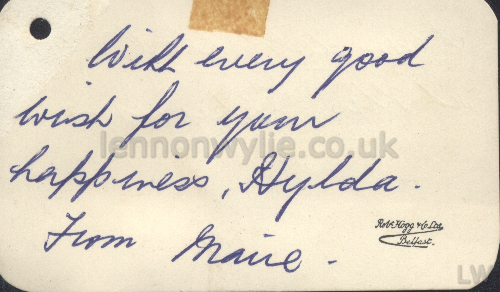 With every good
wish for your
happiness, Hylda.
From Maire.
Robt. Hogg & Co Ltd.
Belfast.
lennonwylie.co.uk
LW